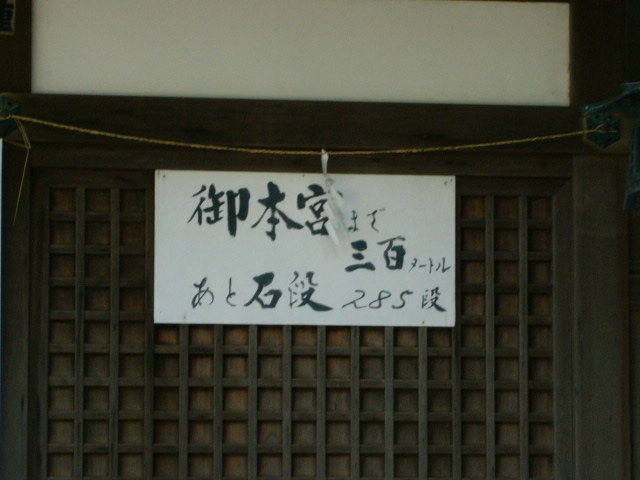 御本宮まで
三百メートル
あと石段 285段